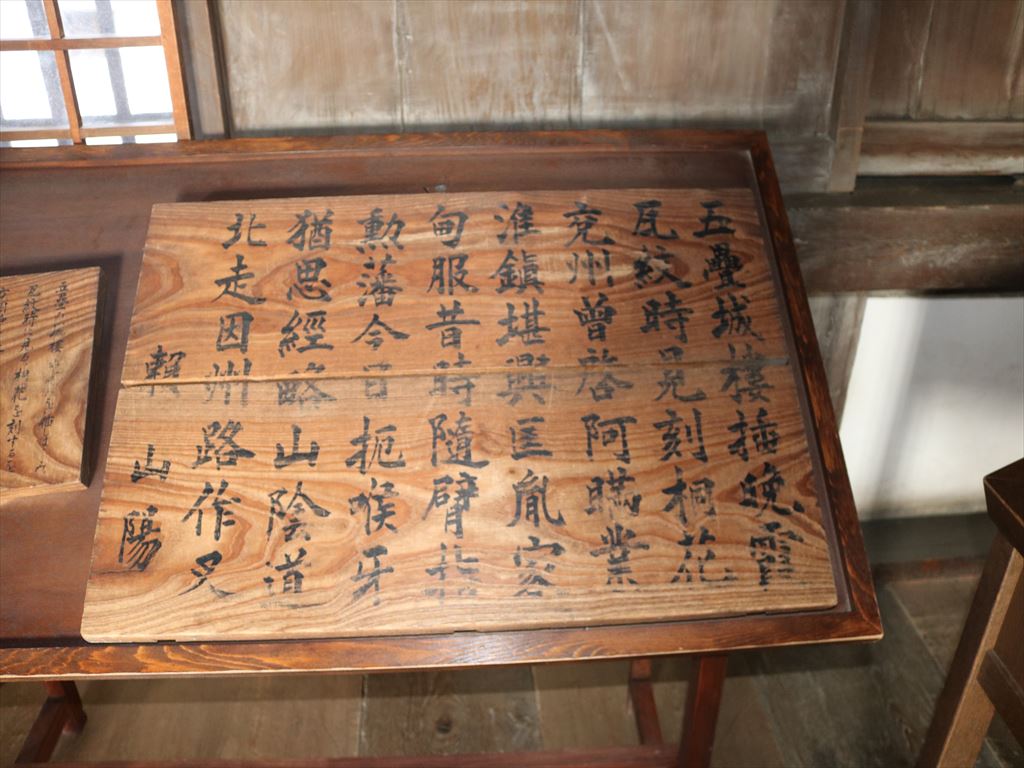 五疊城樓插晩霞
瓦紋時見刻桐花
兗州曾啓阿瞞業
淮鎭堪興匡胤家
甸服昔時隨臂指
勳藩今日扼喉牙
猶思經略山陰道
北走因州路作叉
賴山陽